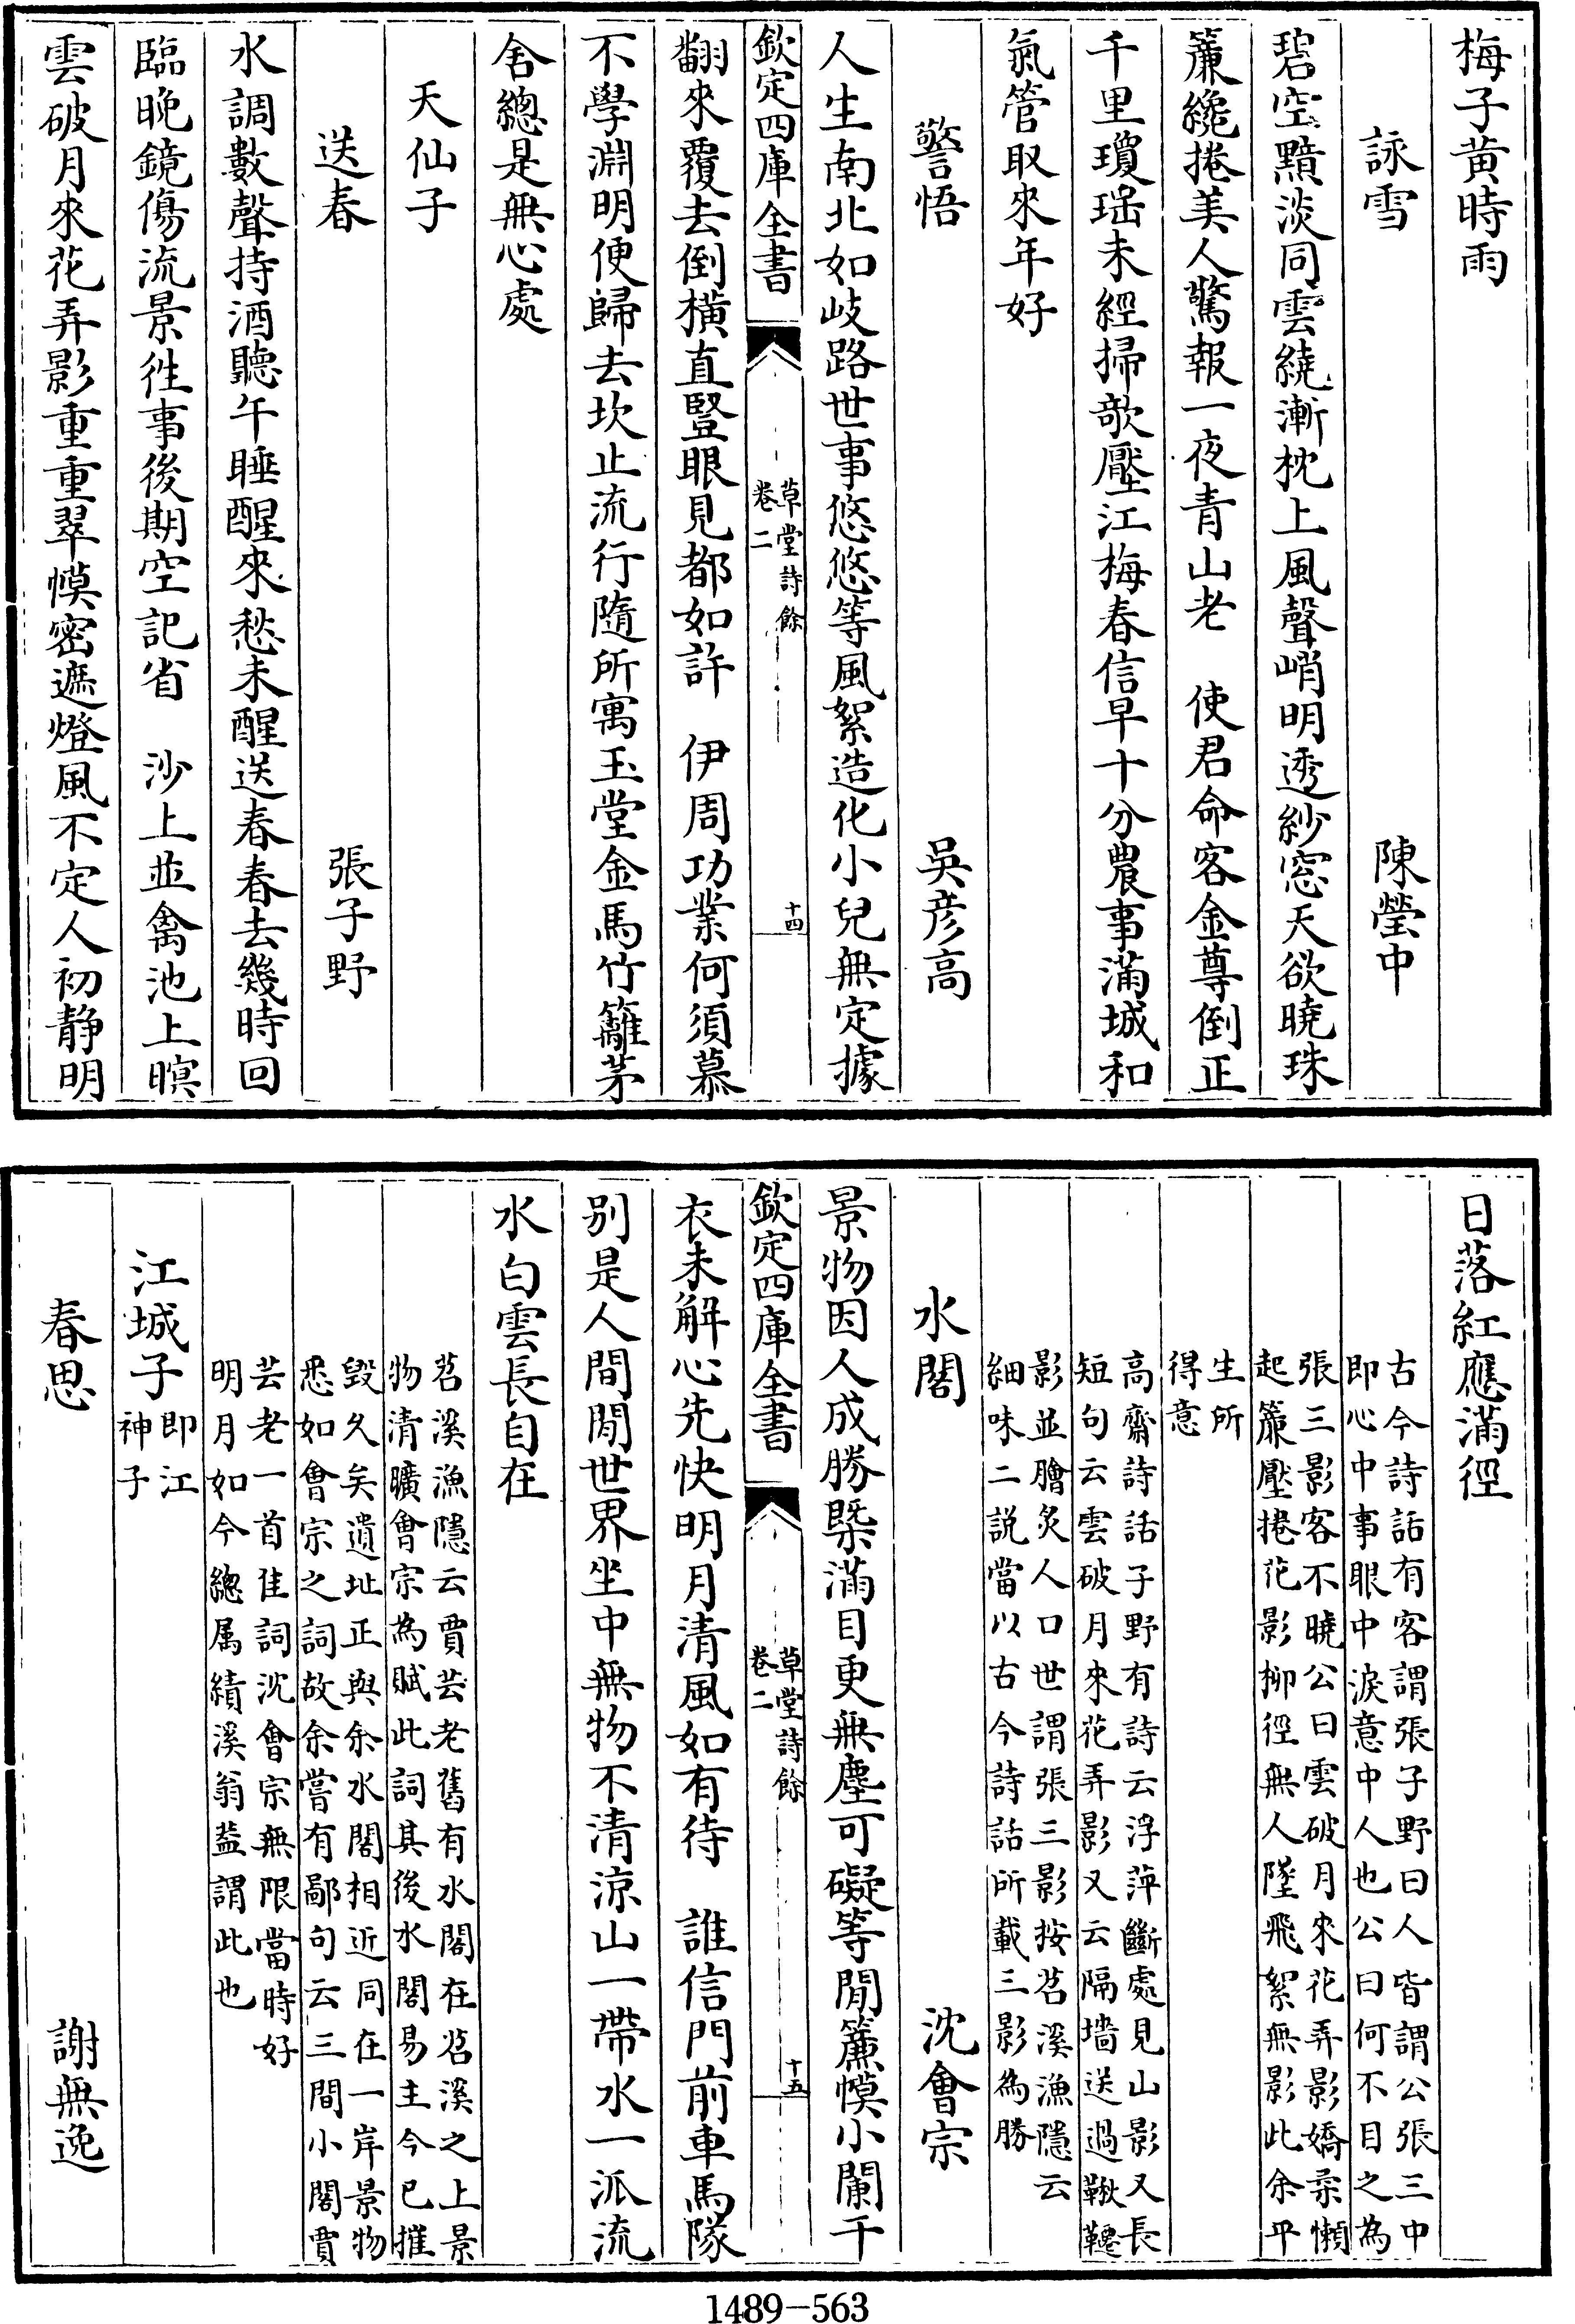 梅子黄時雨
詠雪 陳瑩中
碧空黯淡同雲繞漸枕上風聲峭明透紗窓天欲曉珠
簾纔捲美人驚報一夜青山老 使君命客金尊倒正
千里瓊瑶未經掃欹壓江梅春信早十分農事滿城和
氣管取來年好
警悟 吳彦高
人生南北如岐路世事悠悠等風絮造化小兒無定據
欽定四庫全書 草堂詩餘 卷二 十四
翻來覆去倒橫直豎眼見都如許 伊周功業何須慕
不學淵明便歸去坎止流行隨所寓玉堂金馬竹籬茅
舍總是無心處
天仙子
送春 張子野
水調數聲持酒聽午睡醒來愁未醒送春春去幾時回
臨晚鏡傷流景徃事後期空記省 沙上並禽池上暝
雲破月來花弄影重重翠幙密遮燈風不定人初静明
日落紅應滿徑
古今詩話有客謂張子野曰人皆謂公張三中
即心中事眼中淚意中人也公曰何不目之為
張三影客不曉公曰雲破月來花弄影嬌柔懶
起簾壓捲花影栁徑無人墜飛絮無影此余平
生所
得意
高齋詩話子野有詩云浮萍斷處見山影又長
短句云雲破月來花弄影又云隔墻送過鞦韆
影並膾炙人口世謂張三影按苕溪漁隱云
細味二説當以古今詩話所載三影為勝
水閣 沈會宗
景物因人成勝槩滿目更無塵可礙等閒簾幙小闌干
欽定四庫全書 草堂詩餘 卷二 十五
衣未解心先快明月清風如有待 誰信門前車馬隊
别是人間閒世界坐中無物不清涼山一帶水一派流
水白雲長自在
苕溪漁隱云賈芸老舊有水閣在苕溪之上景
物清曠會宗為賦此詞其後水閣易主今已摧
毀久矣遺址正與余水閣相近同在一岸景物
悉如會宗之詞故余嘗有鄙句云三間小閣賈
芸老一首佳詞沈會宗無限當時好
明月如今總属績溪翁葢謂此也
江城子 即江神子
春思 謝無逸
1489-563